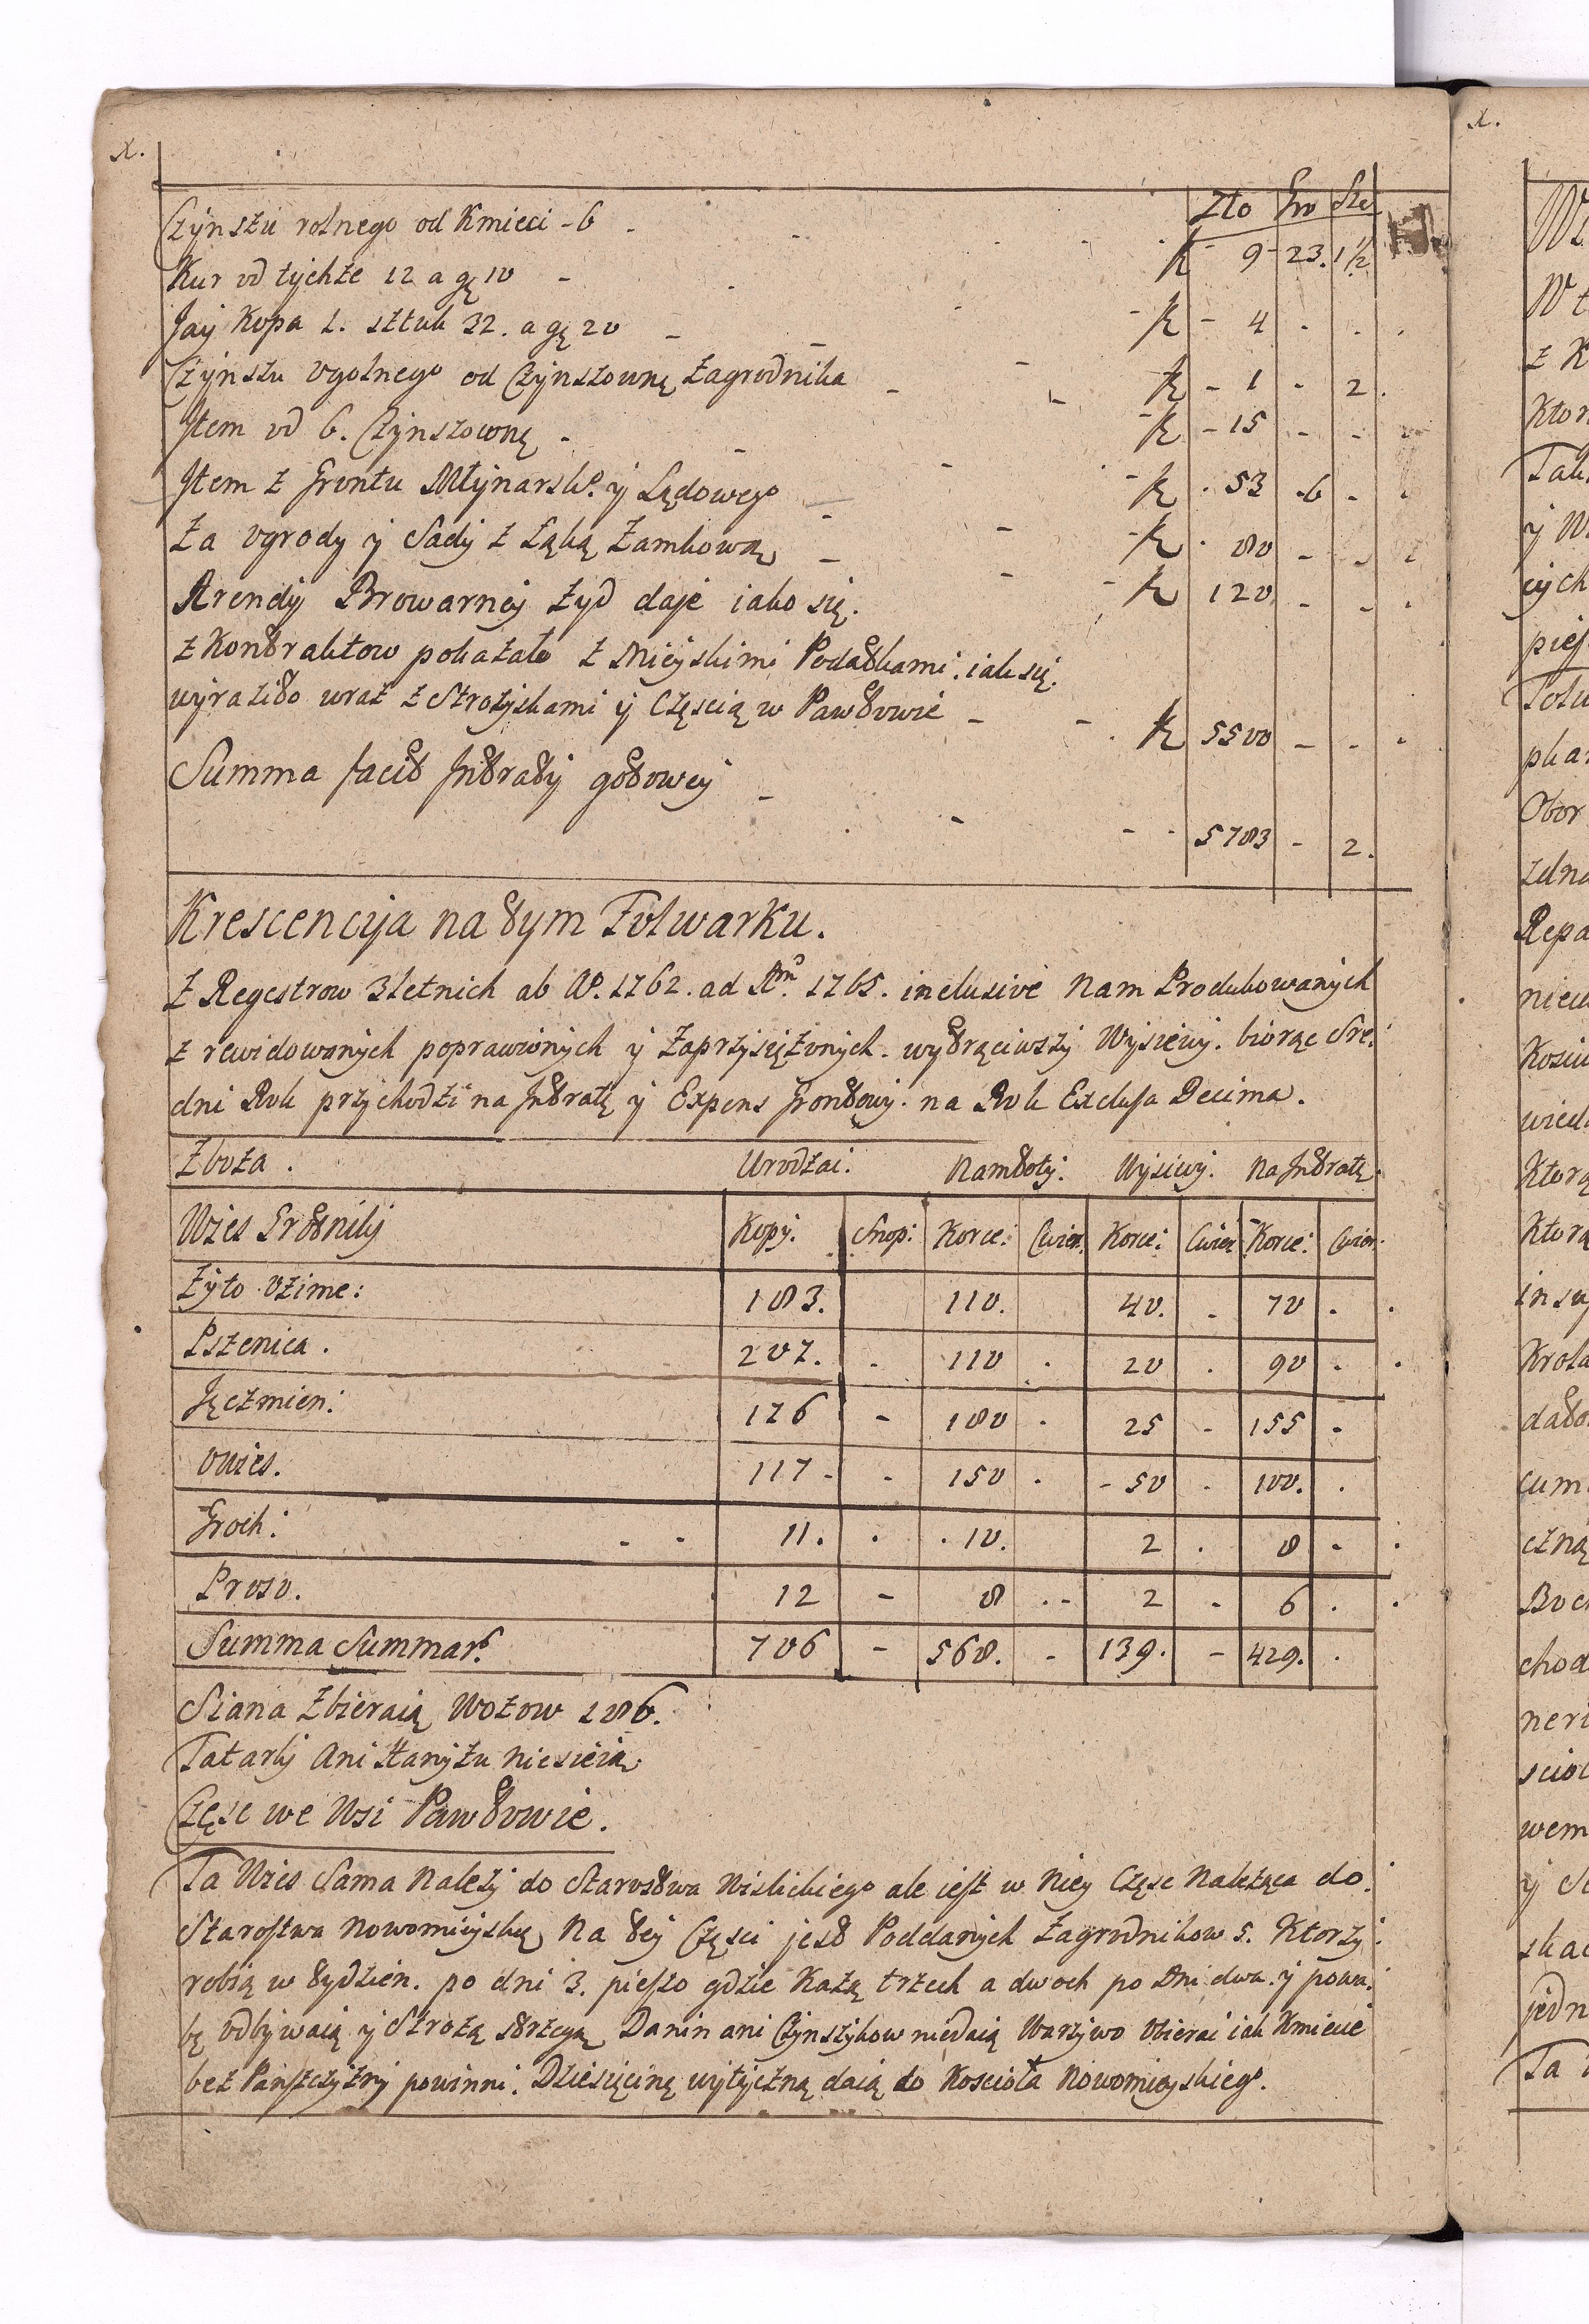 x.
Zło Gro Sze
Czynszu rolnego od Kmieci - 6 - fl - 9 - 23. 1 1/2
Kur od tychże 12 a gę 10 - fl - 4 . . .
Jay Kopa 1. sztuk 32. a gę 20 - fl - 1 - 2.
Czynszu ogolnego od Czynszownę Zagrodnika - fl - 15 - -
Item od 6. Czynszownę - fl . 53 . 6 - .
Item z Gruntu Młynarsko. y Lądowego - fl . 80 - -
Za ogrody y Sady z Łąką Zamkową - fl 120 - - .
Arendy Browarney Żyd daje iako się.
z Kontraktow pokazało z Mieyskimi Podatkami. iak się.
wyraziło wraz z Strożyskami y Częscią w Pawłowie - fl 5500 - - .
Summa facit Intraty gotowey - 5783 - 2.
Krescencyja na tym Folwarku.
Z Regestrow 3letnich ab Ao. 1762. ad Anm. 1765. inclusive Nam Produkowanych
z rewidowanych poprawionych y Zaprzysiężonych. wytrąciwszy Wysiewy. biorąc Sre:
dni Rok przychodzi na Intratę y Expens Gontowy. na Rok Exclusa Decima.
Zboża. Urodzai: Namłoty: Wysiwy. Na Intratę.
Wies Grotniky Kopy. Snop: Korce: Cwier. Korce: Cwier Korce: Cwier.
Zyto Ozime: 183. 110. 40. - 70 . .
Pszenica. 207. . 110 . 20 . 90 . .
Jęczmien: 176 - 180 . 25 - 155 -
Owies. 117 - - 150 . - 50 . 100. .
Groch: - - 11. . . 10. 2 . 8 - .
Proso. 12 - 8 . - 2 - 6 . .
Summa Summar. 706 - 568. - 139. - 429. .
Siana Zbieraią Wozow 186.
Tatarky Ani Hanyżu nie sieią
Częsc we Wsi Pawłowie.
Ta Wies Sama Należy do Starostwa Wislickiego ale iest w Niey Częsc Należąca do:
Starostwa Nowomieyskię Na tey Częsci jest Poddanych Zagrodnikow 5. Ktorzy:
robią w tydzien. po dni 3. pieszo gdzie Każą trzech a dwoch po Dni dwa. y powa:
bę odbywaią y Strożą strzegą Danin ani Czynszykow niedaią Warzywo Obierac iak Kmiecie
bez Panszczyzny powinni. Dziesięcinę wytyczną daią do Koscioła Nowomieyskiego.